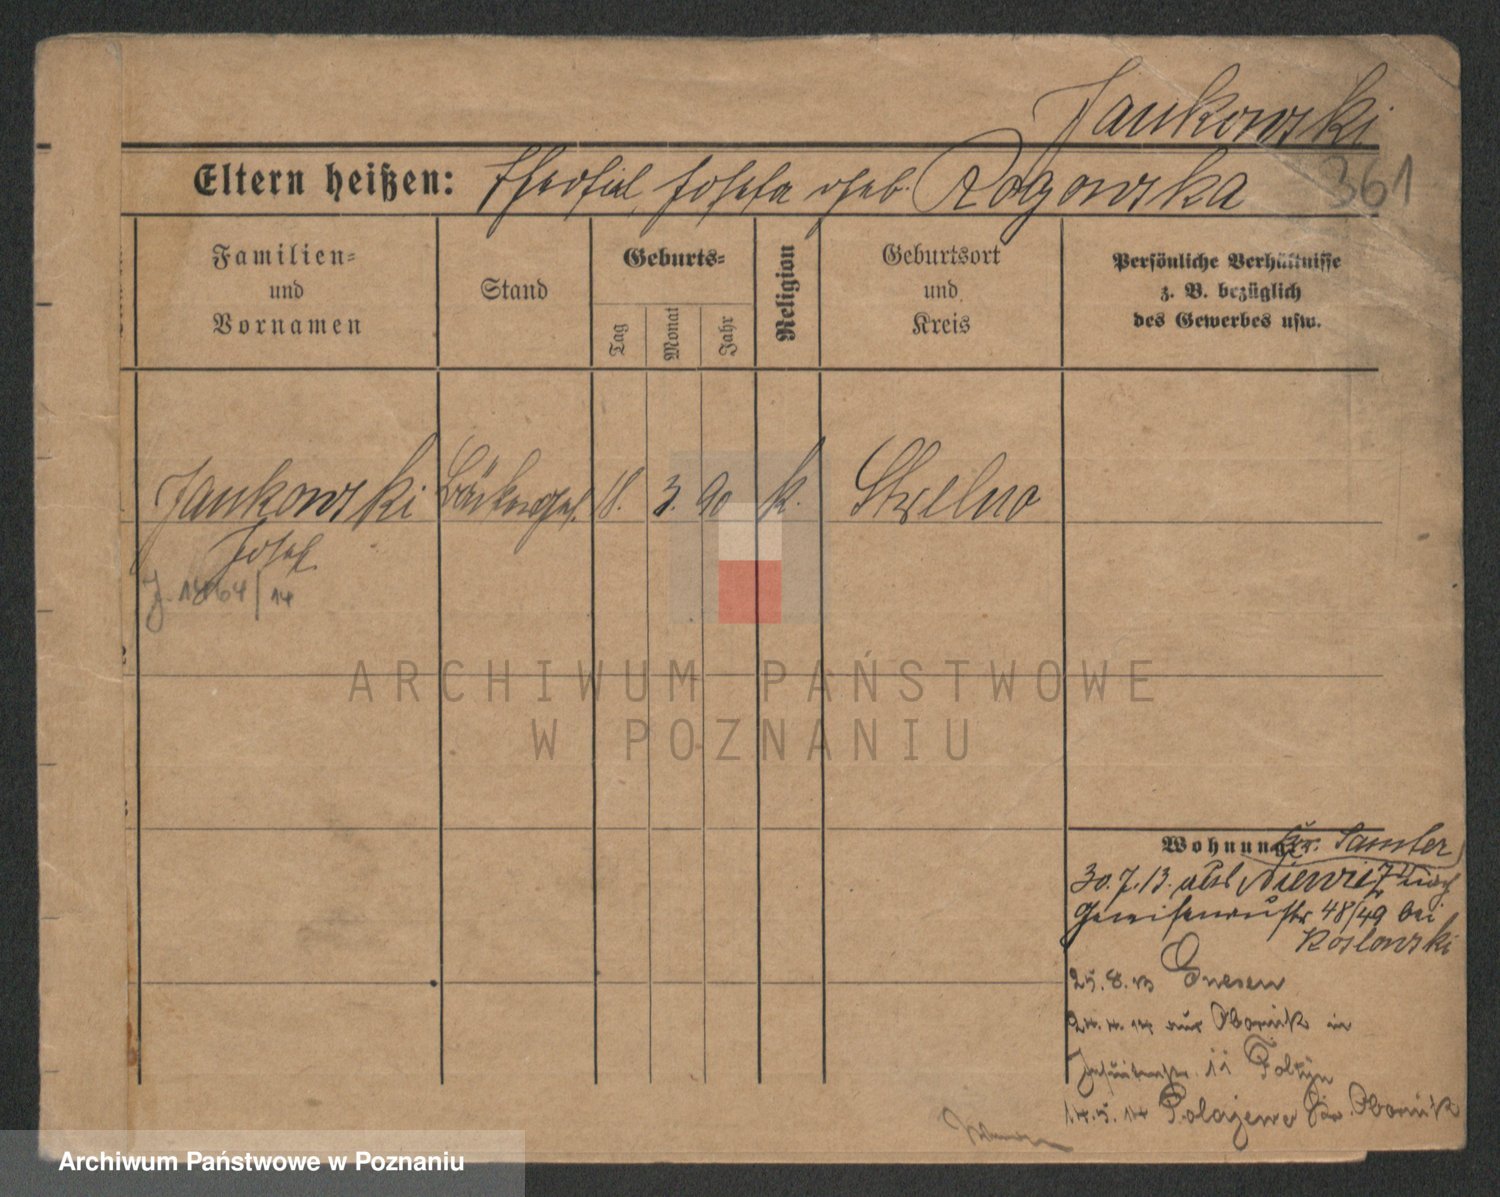 Jankowski
Eltern heißen: Josefa geb. Rogowska
361
Familien-
und
Vornamen
Stand
Geburts-
Tag
Monat
Jahr
Religion
Geburtsort
und
Kreis
Persönliche Verhältnisse
z. B. bezüglich
des Gewerbes usw.
Jankowski
Josef
J. 1864/14
Bäckerges.
18.
3.
90
k.
Strelno
Wohnung: Kr. Samter
30.7.13. aus nach
48/49 bei
Koslowski
25.8.13 Gnesen
24.4.14 aus Obornik in
Jesuitenstr. 11
14.5.14 Polajewo Kr. Obornik
ARCHIWUM PAŃSTWOWE
W POZNANIU
Archiwum Państwowe w Poznaniu